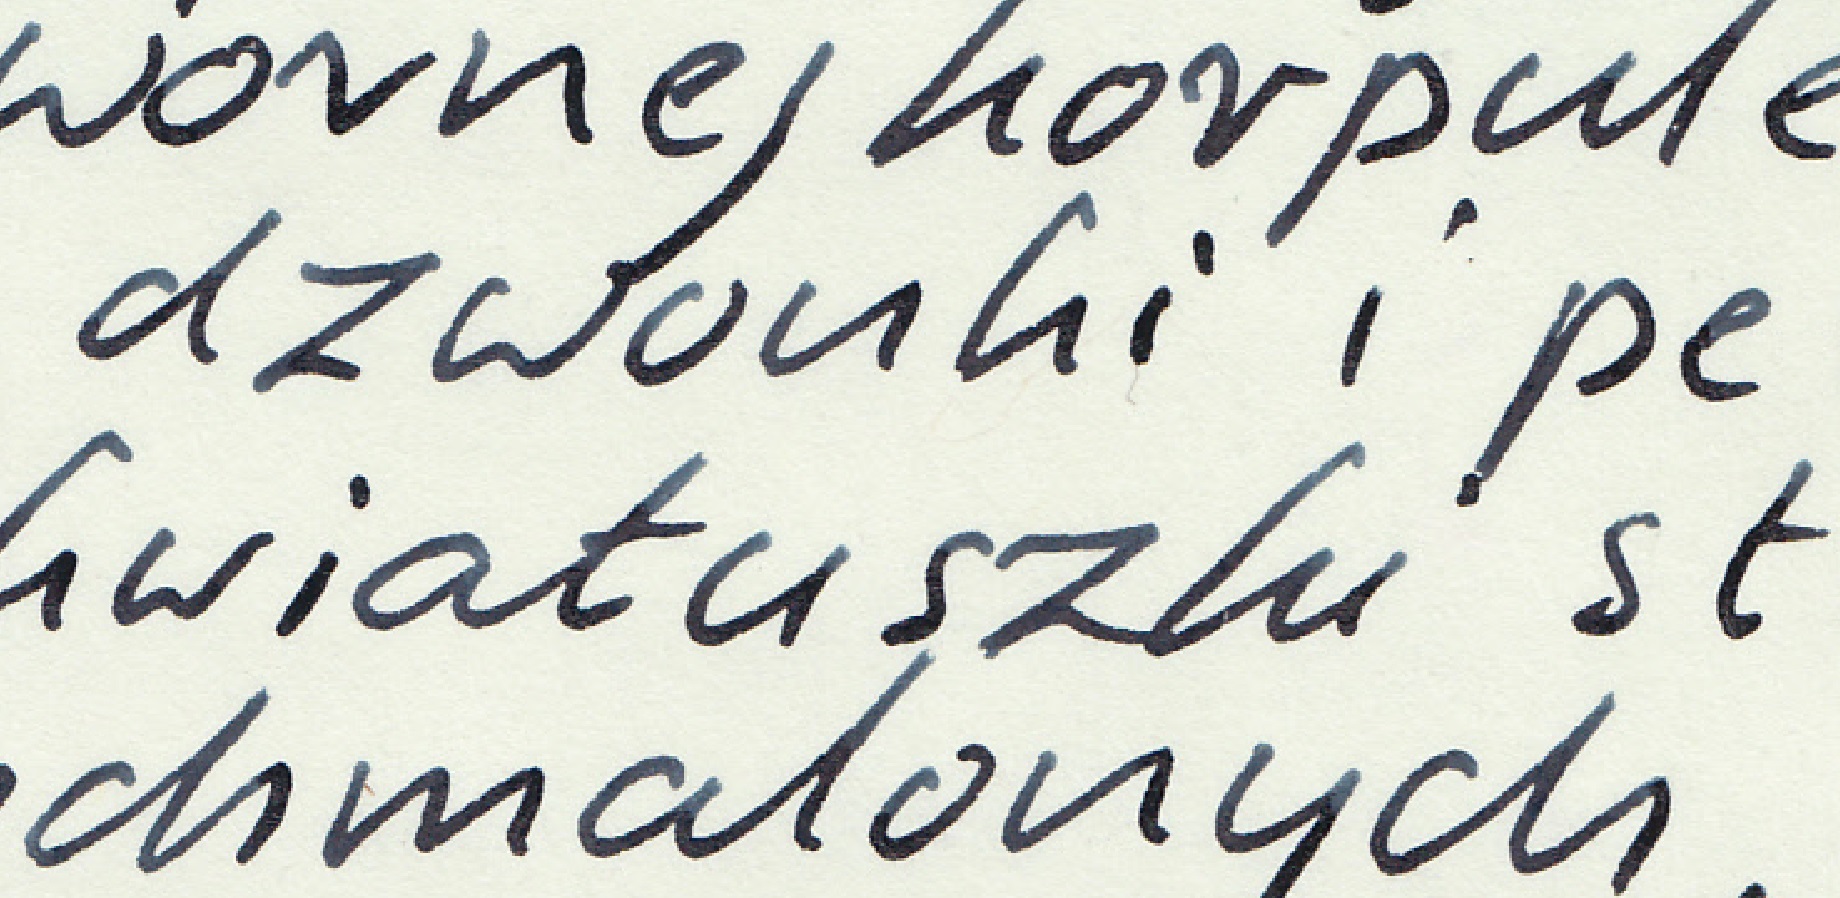 wornej korpule
dzwonki i pe
kwiatuszku st
chmalonych